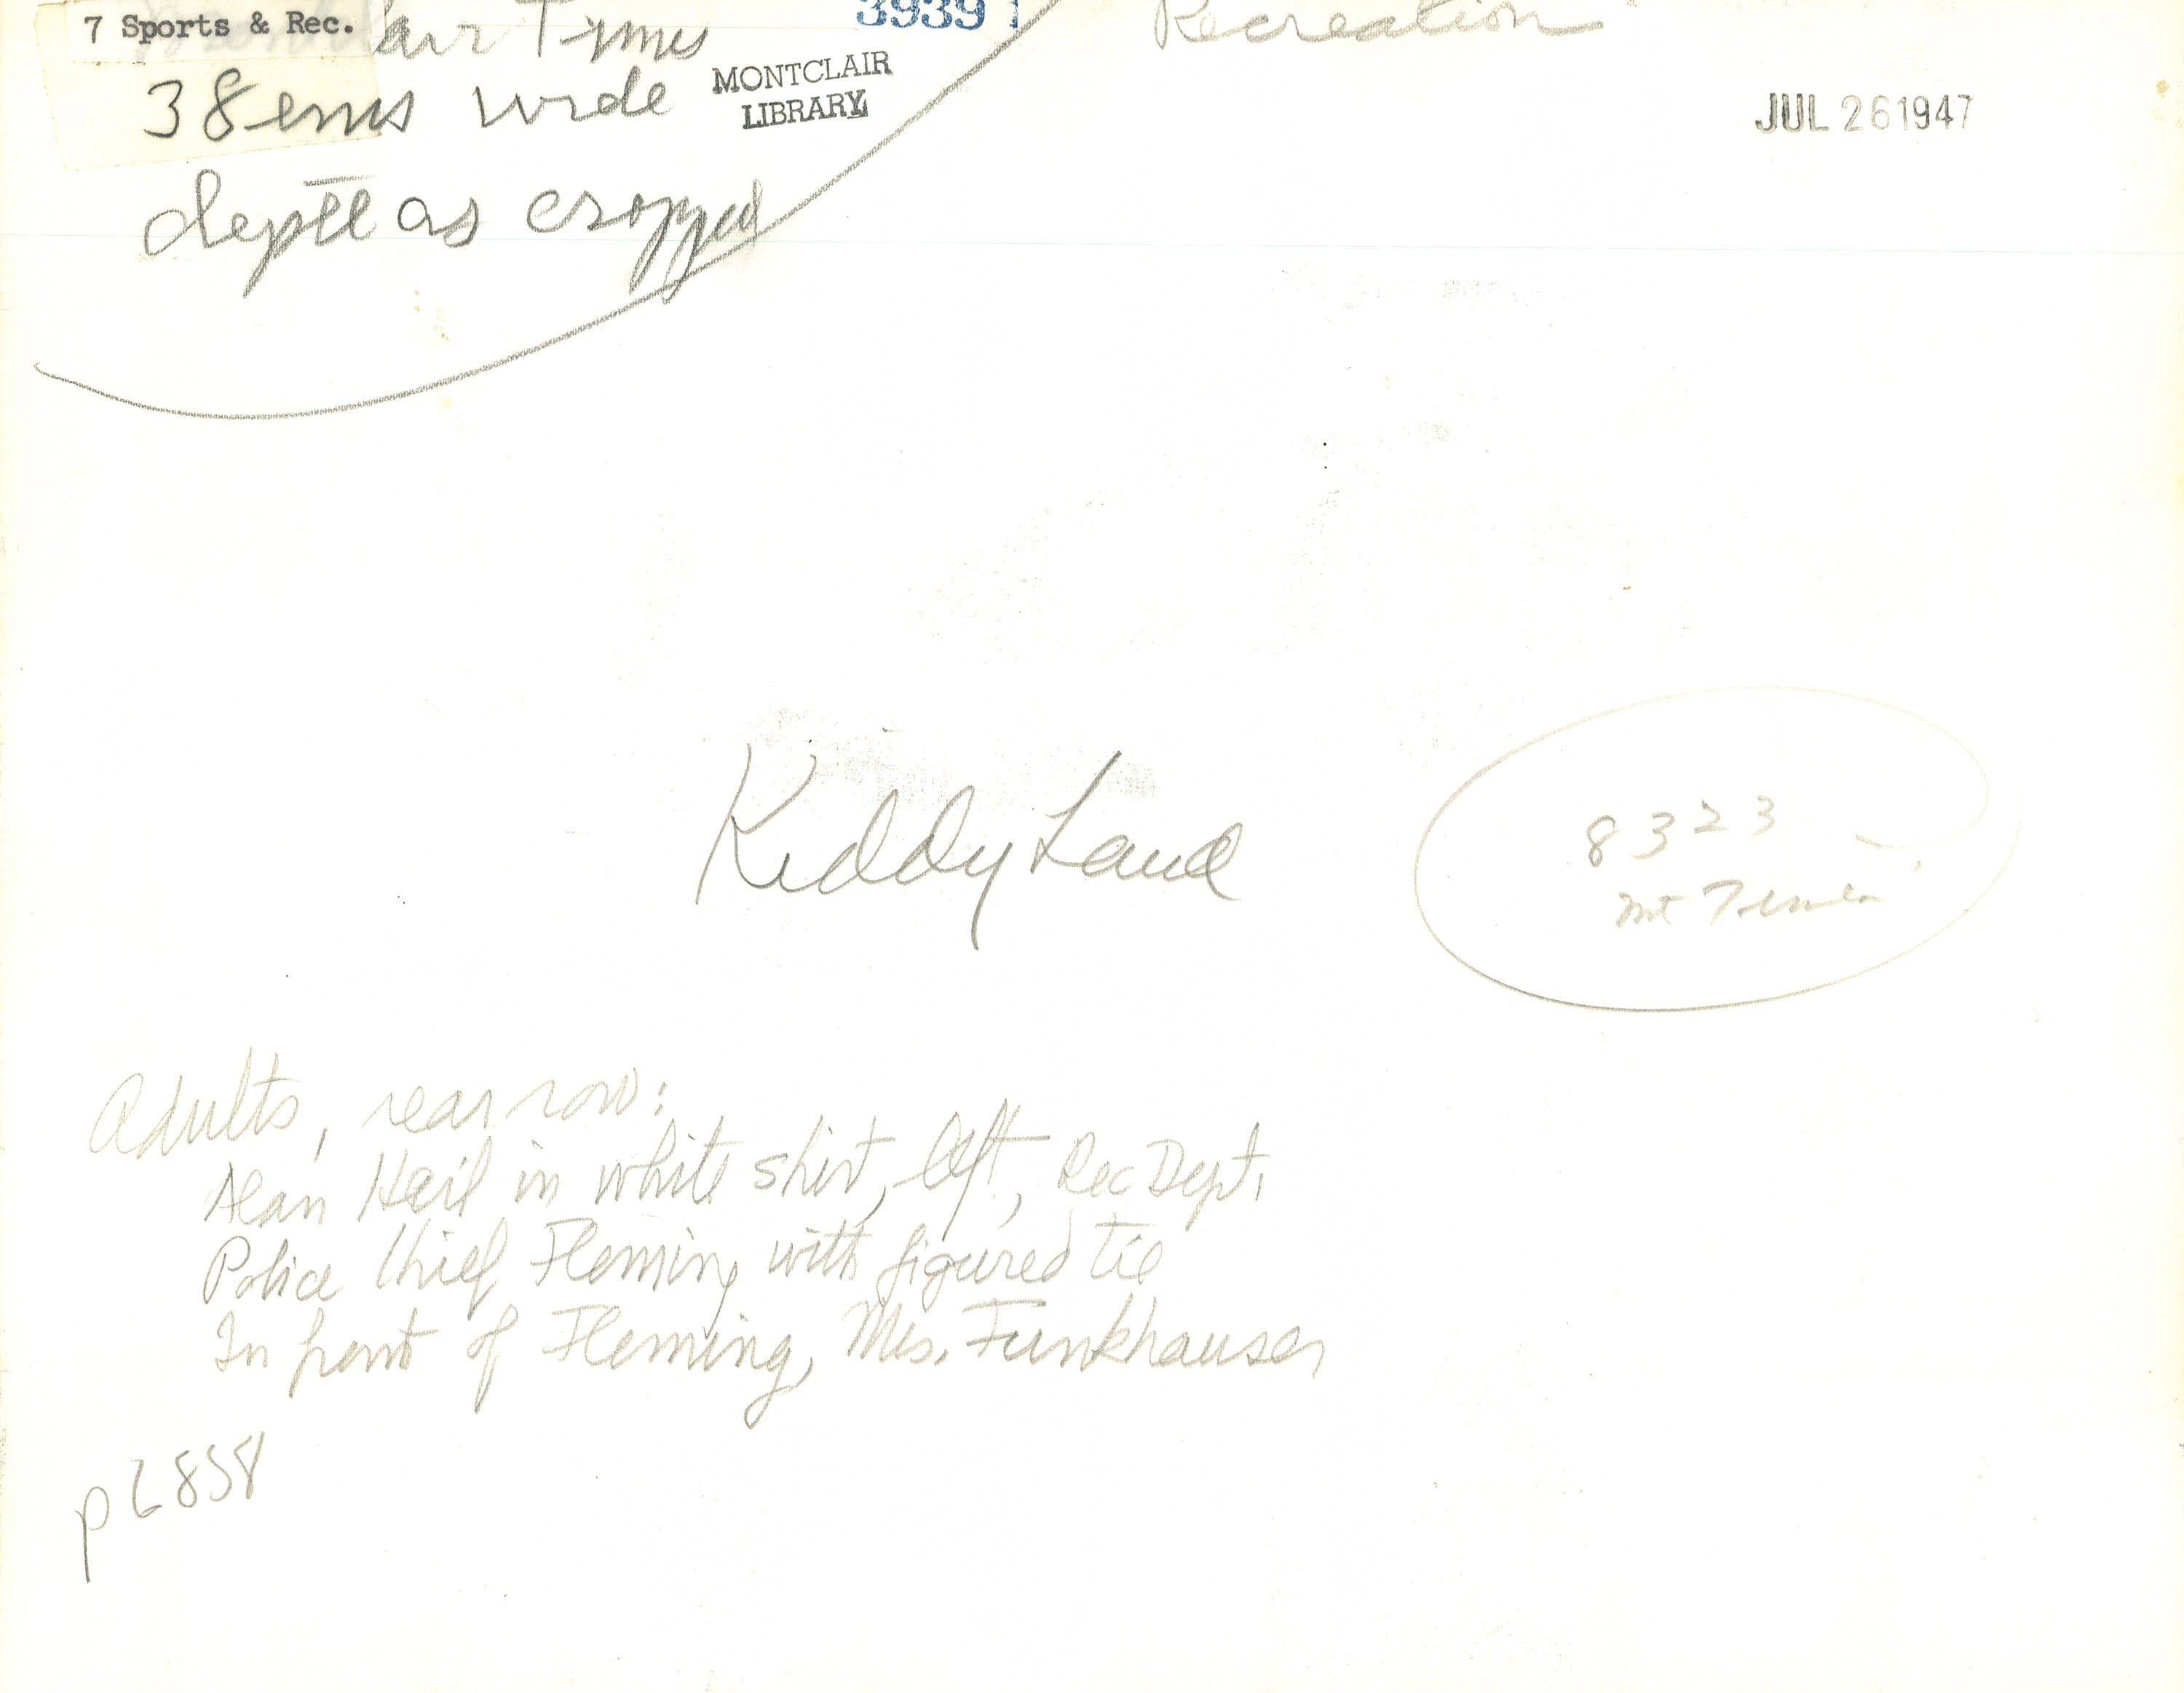 7 Sports & Rec.
air Times
3939
Recreation
38 ems wide
MONTCLAIR
LIBRARY
JUL 26 1947
depth as cropped
Kiddy Land
8323
Mt
Adults, rear row:
Alan in white shirt, left, Rec Dept.
Police Chief Fleming with figured tie
In front of Fleming, Mrs. Funkhauser
p 6858